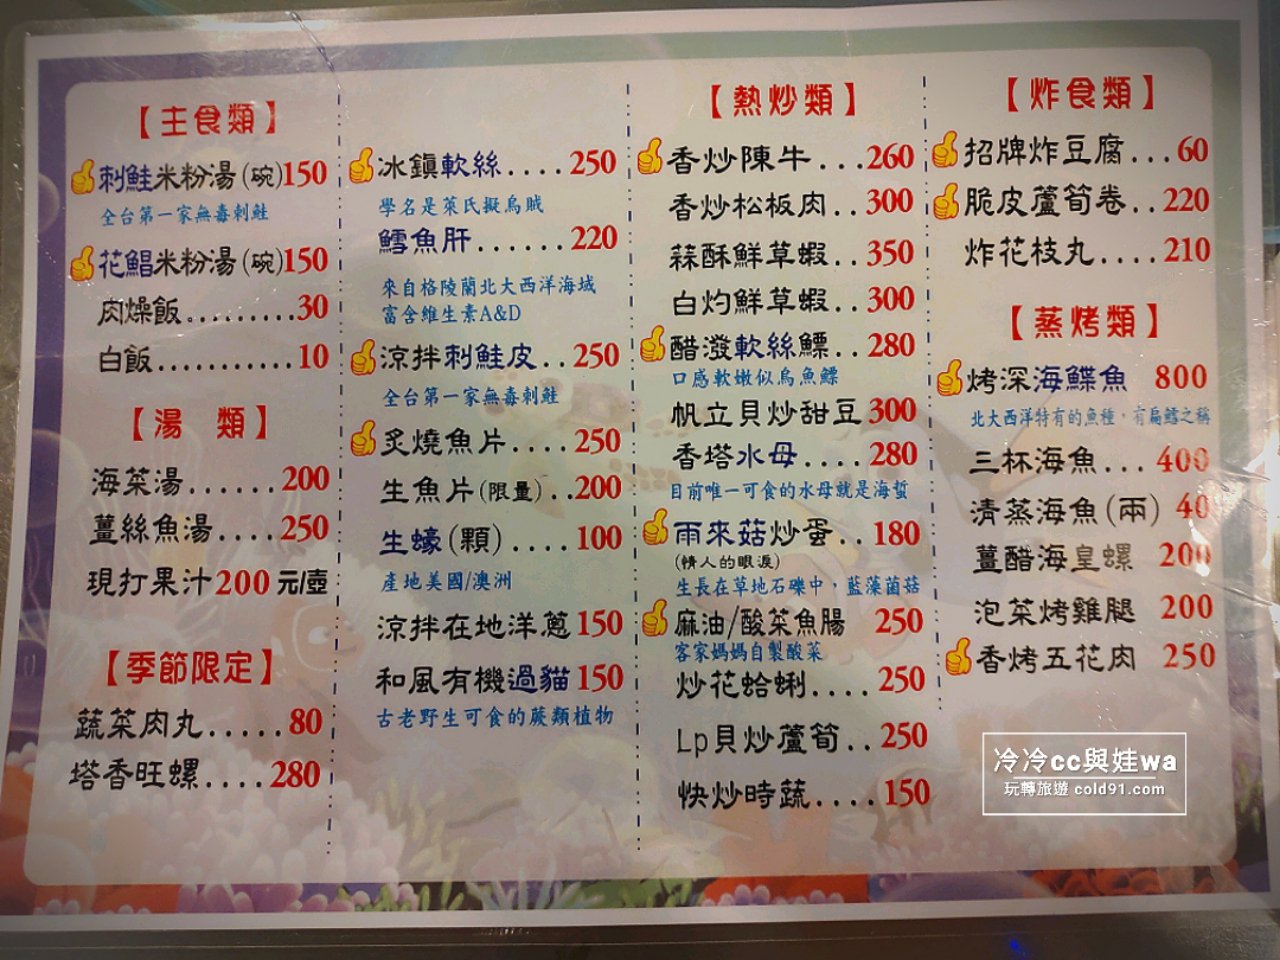 【主食類】
刺鮭米粉湯(碗)150
全台第一家無毒刺鮭
花鯧米粉湯(碗)150
肉燥飯.........30
白飯...........10
【湯 類】
海菜湯......200
薑絲魚湯....250
現打果汁200元/壺
【季節限定】
蔬菜肉丸.....80
塔香旺螺....280
冰鎮軟絲....250
學名是萊氏擬烏賊
鱈魚肝......220
來自格陵蘭北大西洋海域
富含維生素A&D
涼拌刺鮭皮..250
全台第一家無毒刺鮭
炙燒魚片....250
生魚片(限量)..200
生蠔(顆)....100
產地美國/澳洲
涼拌在地洋蔥150
和風有機過貓150
古老野生可食的蕨類植物
【熱炒類】
香炒陳牛...260
香炒松板肉..300
蒜酥鮮草蝦..350
白灼鮮草蝦..300
醋潑軟絲鰾..280
口感軟嫩似烏魚鰾
帆立貝炒甜豆300
香塔水母....280
目前唯一可食的水母就是海蜇
雨來菇炒蛋..180
(情人的眼淚)
生長在草地石礫中，藍藻菌菇
麻油/酸菜魚腸 250
客家媽媽自製酸菜
炒花蛤蜊....250
Lp貝炒蘆筍..250
快炒時蔬....150
【炸食類】
招牌炸豆腐...60
脆皮蘆筍卷..220
炸花枝丸....210
【蒸烤類】
烤深海鰈魚 800
北大西洋特有的魚種，有扁鱈之稱
三杯海魚...400
清蒸海魚(兩) 40
薑醋海皇螺 200
泡菜烤雞腿 200
香烤五花肉 250
冷冷cc與娃wa
玩轉旅遊 cold91.com